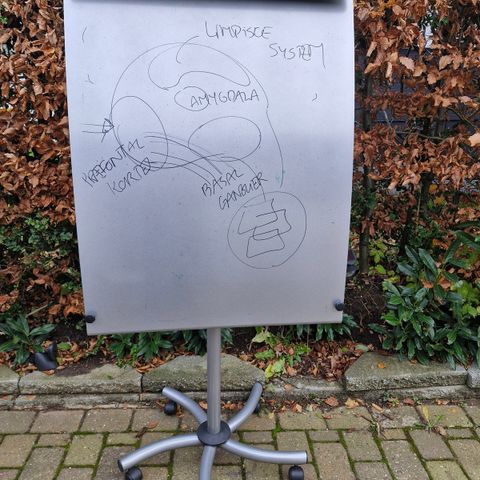 LIMBISCE
SYSTEM
AMYGDALA
PRÆFONTAL
KORTEX
BASAL
GANGLIER